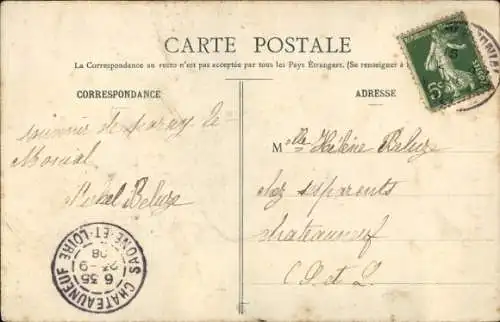 CARTE POSTALE
La Correspondance au recto n'est pas acceptée par tous les Pays Étrangers. (Se renseigner à
CORRESPONDANCE
ADRESSE
souvenir de paray le
Monial
Beluze
Mlle Hélène Beluze
chez ses parents
chateauneuf
(S et L
5c
CHATEAUNEUF
6 35
23 - 9
08
SAONE-ET-LOIRE